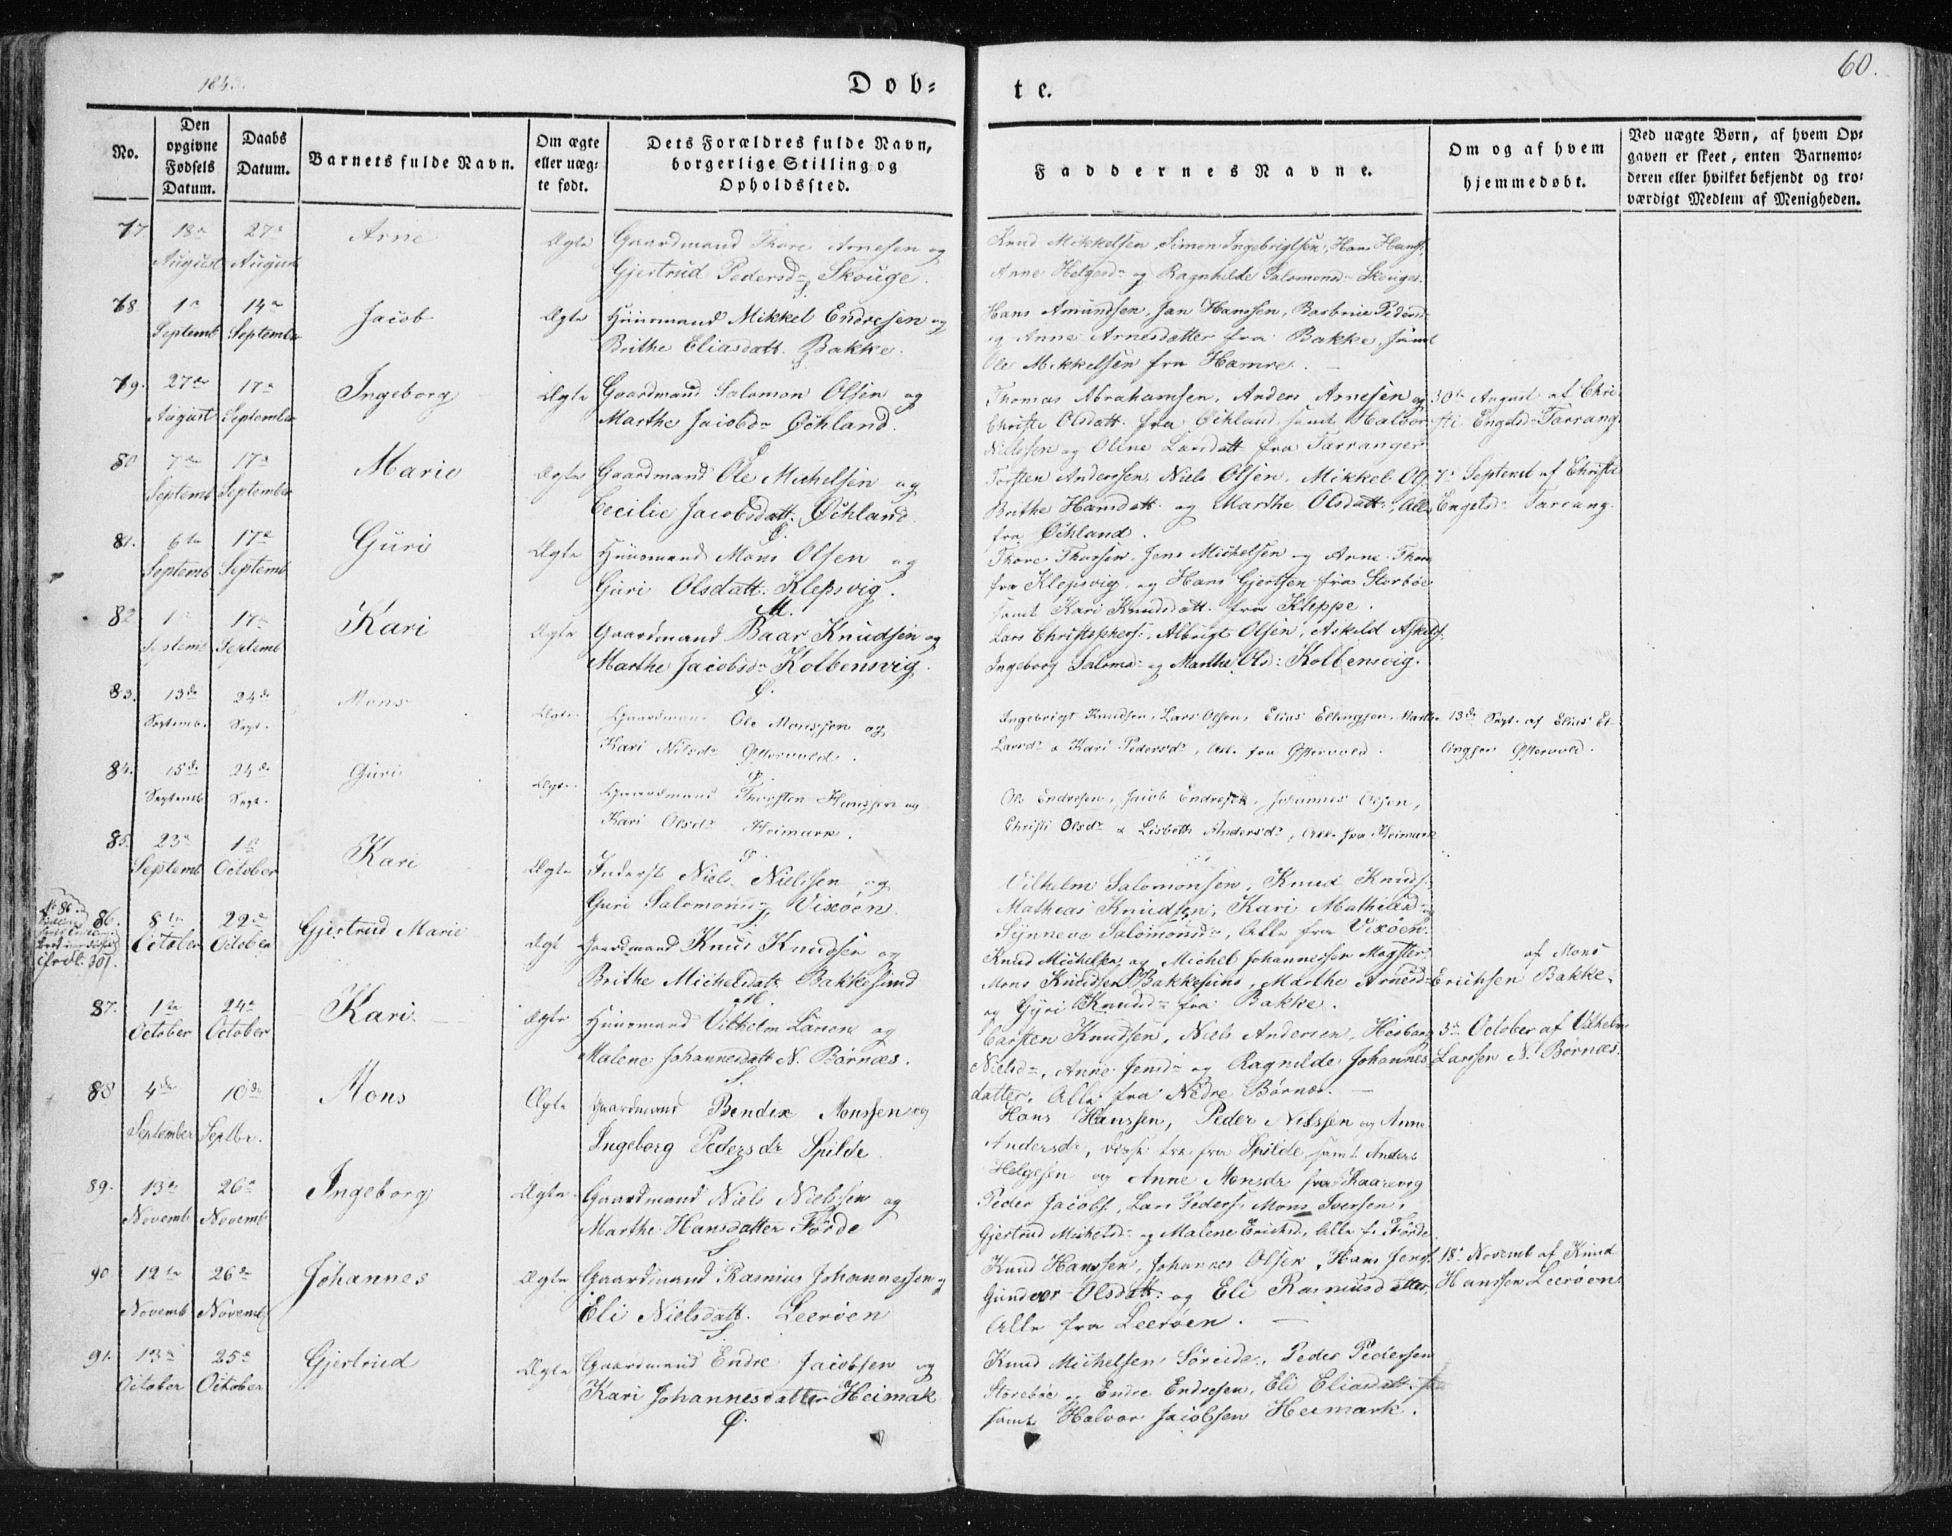 184
Dob=
te.
60.
No.
Den opgivne Fødsels Datum.
Daabs Datum.
Barnets fulde Navn.
Om ægte eller uæg= te født.
Dets Forældres fulde Navn, borgerlige Stilling og Opholdssted.
Faddernes Navne.
Om og af hvem hjemmedøbt.
Ved uægte Børn, af hvem Op= gaven er skeet, enten Barnemo= deren eller hvilket bekjendt og tro= værdigt Medlem af Menigheden.
77 18de August 27de August Arne Ægte Gaardmand Thore Arnesen og
Gjertrud Pedersdr Skouge.
Knud Mikkelsen, Simon Ingebrigtsen, Hans Hanss.
Anne Helgesdr og Ragnhilde Salomonsdr Skouge.
78. 1ste Septemb 14de September Jacob Ægte Huusmand Mikkel Endresen og
Brithe Eliasdatt. Bakke.
Hans Amundsen, Jan Hanssen, Pedersd
og Anne Arnesdatter fra Bakke, samt
Ole Mikkelsen fra Hamre.
79. 27de August 17de September Ingeborg Ægte Gaardmand Salomon Olsen og
Marthe Jacobdr Öchland.
Thomas Abrahamsen, Anders Arnesen og
Christi Olsdatt. fra Öchland samt Halvor
Nielssen og Oline Larsdatt fra Tarranger
30te August af Chri-
sti Engelsdr Tarrang.
80 7de Septemb 17de September Marie Ægte Gaardmand Ole Michelsen og
Cecilie Jacobsdatt. Öchland.
Torsten Anderssen, Niels Olsen, Mikkel Ols
Brithe Hansdatt. og Marthe Olsdatt., Alle
fra Öchland.
7de Septemb af Christi
Engelsdr Tarrang.
81. 6te Septemb 17de Septemb Guri Ægte Huusmand Mons Olsen og
Guri Olsdatt. Klepsvig.
Thore Thorsen, Jens Michelsen og Arne Thore
fra Klepsvig, og Hans Gjertsen fra Storbøe
samt Kari Knudsdatt. fra Kleppe.
82 1ste Septemb 17de Septemb Kari Ægte Gaardmand Baar Knudsen og
Marthe Jacobsdr Kolbensvig.
Lars Christophers., Albrigt Olsen, Askild Askilds.
Ingeborg Salomd: og Marthe Olsd: Kolbensvig.
83. 13de Septemb. 24de Sept. Mons Ægte Gaardmand Ole Monssen og
Kari Nilsdr Østervold.
Ingebrigt Knudsen, Lars Olsen, Elias Ellingsen, Marthe
Larsdr & Kari Pedersdr, Alle fra Østervold.
13de Sept. af Elias El-
lingsen Østervold.
84. 15de Septemb 24de Sept. Guri Ægte Gaardmand Thorsten Hanssen og
Kari Olsdr Heimark.
Ole Endresen, Jacob Endresen, Johannes Olsen,
Christi Olsdr & Lisbeth Andersdr, Alle fra Heimark
85. 23de Septemb 1ste October Kari Ægte Inderst Niels Nielssen og
Guri Salomonsdr Vixøen.
Vilhelm Salomonsen, Knud Knuds:
Mathias Knudsen, Kari Mathiasd:
Synneve Salomonsdr, Alle fra Vixøen.
86. 8de October 22de October Gjertrud Marie Ægte Gaardmand Knud Knudsen og
Brithe Michelsdatt Bakkesund
Knud Michelsen og Michel Johannessen Møgster
Mons Knudsen Bakkesund, Marthe Arnesd:
og Gyri Knudsdr fra Bakke.
af Mons
Erichsen Bakke.
87. 1ste October 24de October Kari Ægte Huusmand Vilhelm Larsen og
Malene Johannesdatt N. Børnæs.
Carsten Knudsen, Niels Andersen,
Nielsdr, Anne Jensdr og Ragnilde Johannes
datter, Alle fra Nedre Børnæs.
3de October af Vilhelm
Larssen N. Børnæs.
88 4de September 10de Septbr. Mons Ægte Gaardmand Bendix Monssen og
Ingeborg Pedersdr Spilde
Hans Hanssen, Peder Nilssen og Anne
Andersdr, disse tre fra Spilde, samt Anders
Helgesen og Anne Monsdr fra Kaarevig
89. 13de Novemb 26de Novemb Ingeborg Ægte Gaardmand Niels Nielssen og
Marthe Hansdatter Førde
Peder Jacobs., Lars Peders. Mons Iversen,
Gjertrud Michelsdr og Malene Erichsd, Alle f. Førde
90 12te Novemb 26de Novemb Johannes Ægte Gaardmand Rasmus Johannessen og
Eli Nielsdatt. Leerøen
Knud Hanssen, Johannes Olsen, Hans Jens.
Gundvor Olsdatt. og Eli Rasmusdatter,
Alle fra Leerøen.
18de Novemb af Knud
Hanssen Leerøen
91. 13de October 25de October Gjertrud Ægte Gaardmand Endre Jacobsen og
Kari Johannesdatter Heimak
Knud Michelsen Søreide, Peder Pedersen
Storebøe og Endre Endresen, Eli Eliasdatt. fra
samt Halvor Jacobsen Heimark.